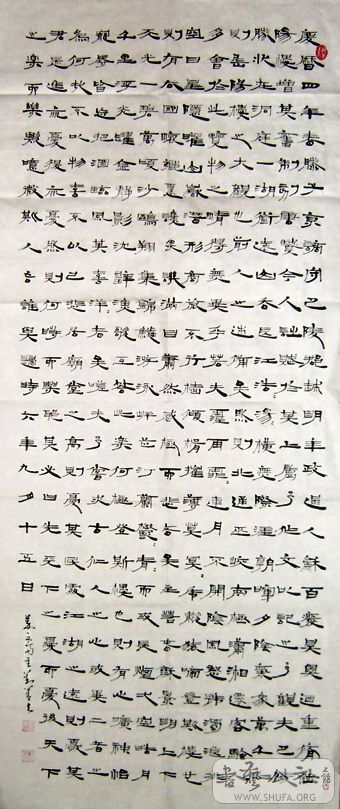 慶曆四年春滕子京謫守巴陵郡越明年政通人和百廢具興迺重脩岳
陽樓增其舊制刻唐賢今人詩賦於其上屬予作文以記之予觀夫巴陵
勝狀在洞庭一湖銜遠山吞長江浩浩湯湯橫無際涯朝暉夕陰氣象萬千此
則岳陽樓之大觀也前人之述備矣然則北通巫峽南極瀟湘遷客騷人
多會于此覽物之情得無異乎若夫霪雨霏霏連月不開陰風怒號濁浪排
空日星隱曜山嶽潛形商旅不行檣傾楫摧薄暮冥冥虎嘯猿啼登斯樓也
則有去國懷鄉憂讒畏譏滿目蕭然感極而悲者矣至若春和景明波瀾不驚上下
天光一碧萬頃沙鷗翔集錦鱗游泳岸芷汀蘭郁郁青青而或長煙一空皓月
千里浮光耀金靜影沈璧漁歌互答此樂何極登斯樓也則有心曠神怡
寵辱皆忘把酒臨風其喜洋洋者矣嗟夫予嘗求古仁人之心或異二者之
為何哉不以物喜不以己悲居廟堂之高則憂其民處江湖之遠則憂其
君是進亦憂退亦憂然則何時而樂耶其必曰先天下之憂而憂後天下
之樂而樂歟噫微斯人吾誰與歸時六年九月十五日
書藝公社
WWW.SHUFA.ORG